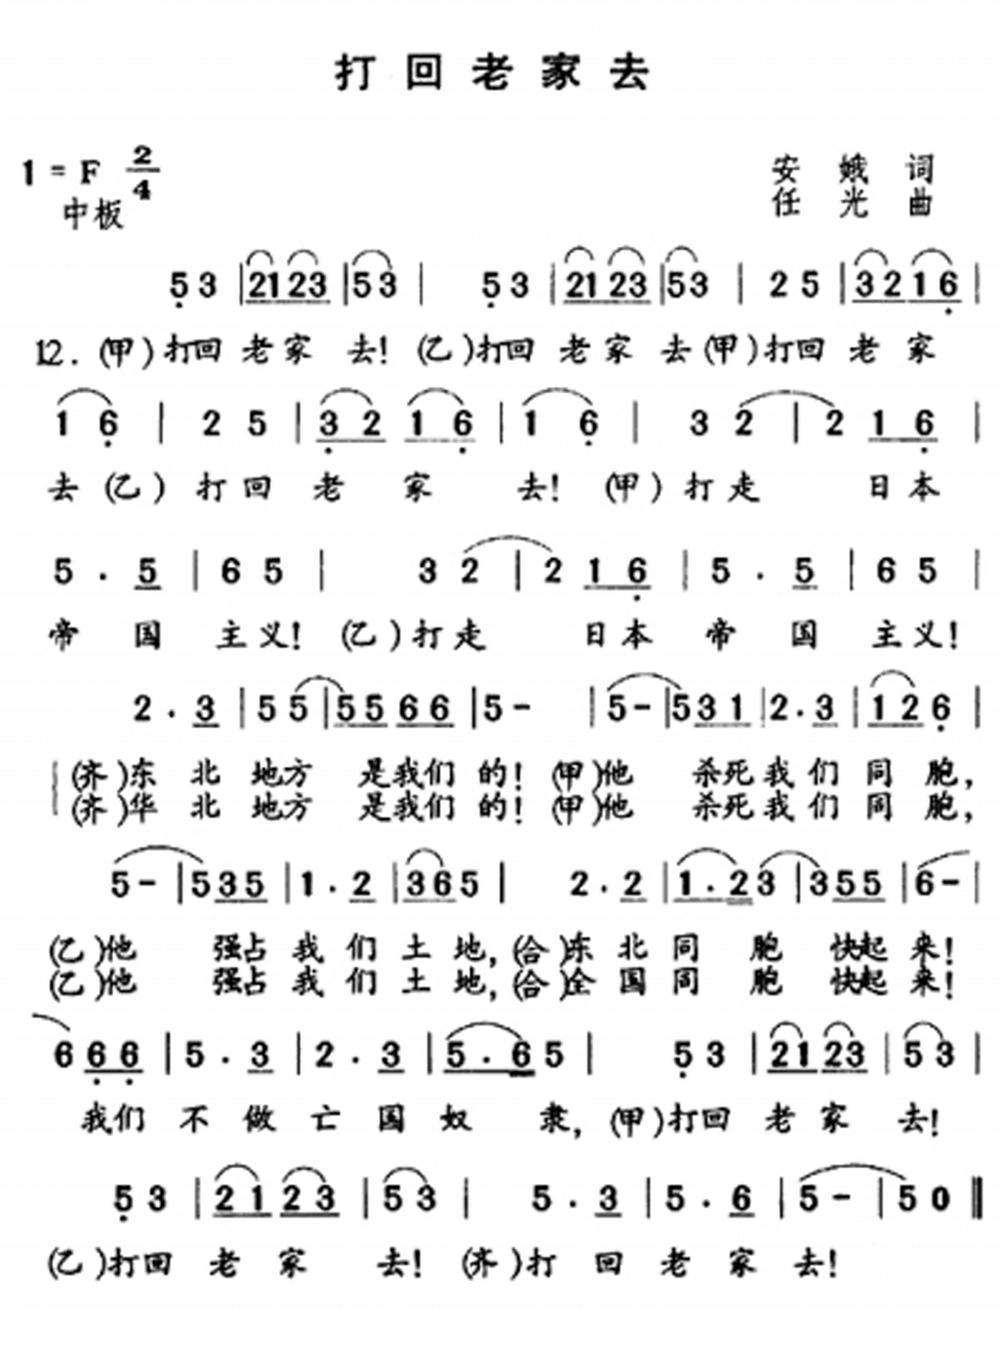 打回老家去
1=F 2/4
中板
安娥词
任光曲
5 3 | 21 23 | 53 | 5 3 | 21 23 | 53 | 2 5 | 32 16 |
12.(甲)打回 老家 去!(乙)打回 老家 去(甲)打回 老家
1 6 | 2 5 | 3 2 1 6 | 1 6 | 3 2 | 2 1 6 |
去(乙)打回 老 家 去!(甲)打走 日本
5 . 5 | 6 5 | 3 2 | 2 1 6 | 5 . 5 | 6 5 |
帝 国 主义!(乙)打走 日本 帝 国 主义!
2 . 3 | 5 5 | 55 66 | 5 - | 5 - | 5 31 | 2 . 3 | 12 6 |
(齐)东 北 地方 是我们 的!(甲)他 杀死我 们 同 胞,
(齐)华 北 地方 是我们 的!(甲)他 杀死我 们 同 胞,
5 - | 5 35 | 1 . 2 | 36 5 | 2 . 2 | 1 . 2 3 | 3 55 | 6 - |
(乙)他 强占 我 们 土 地,(合)东 北 同 胞 快起 来!
(乙)他 强占 我 们 土 地,(合)全 国 同 胞 快起 来!
6 6 6 | 5 . 3 | 2 . 3 | 5 . 6 5 | 5 3 | 21 23 | 53 |
我们 不 做 亡 国 奴 隶,(甲)打回 老 家 去!
5 3 | 21 23 | 53 | 5 . 3 | 5 . 6 | 5 - | 5 0 ‖
(乙)打回 老 家 去!(齐)打 回 老 家 去!